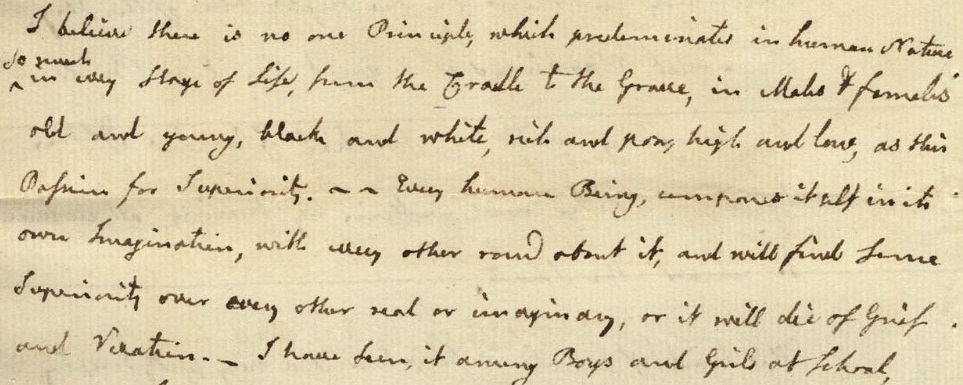 I believe there is no one Principle, which predominates in human Nature
so much
^ in every Stage of Life, from the Cradle to the Grave, in Males & females
old and young, black and white, rich and poor, high and low, as this
Passion for Superiority. ~ ~ Every human Being, compares itself in its
own Imagination, with every other round about it, and will find some
Superiority over every other real or imaginary, or it will die of Grief
and Vexation. — I have seen, it among Boys and Girls at school,